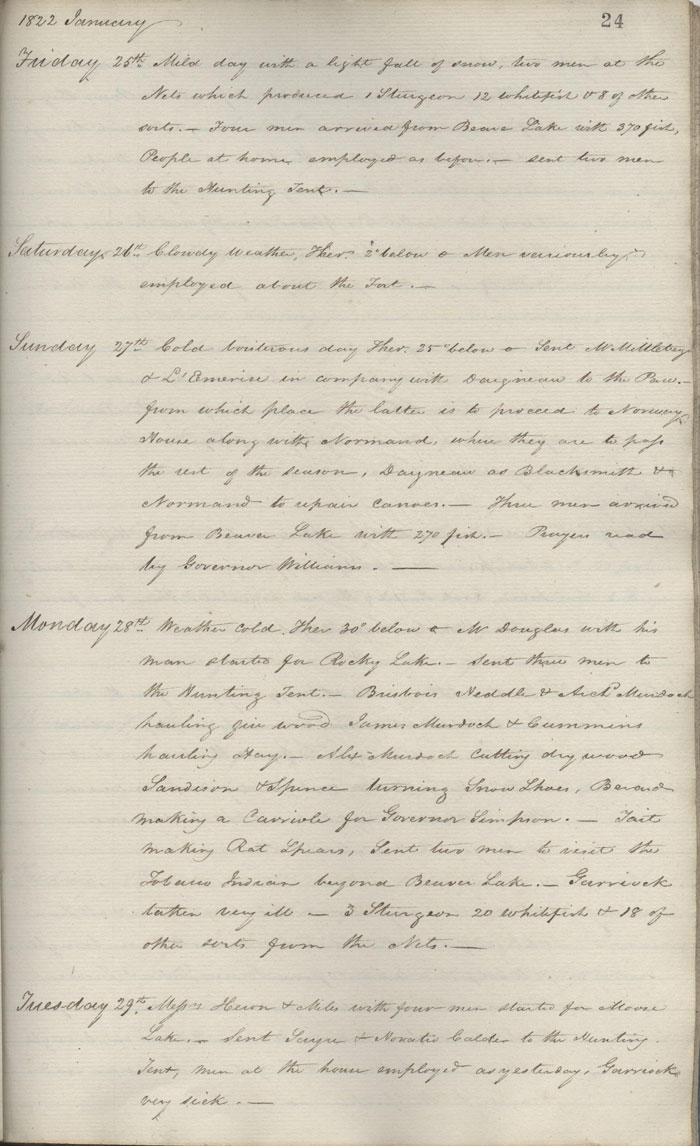 1822 January
24
Friday 25th Mild day with a light fall of snow, two men at the
Nets which produced 1 Sturgeon 12 whitefish & 8 of other
sorts. — Four men arrived from Beave Lake with 370 fish,
People at home employed as before. — sent two men
to the Hunting Tent. —
Saturday 26th Clowdy Weather, Ther. 2° below 0 Men variously
employed about the Fort. —
Sunday 27th Cold boisterous day Ther. 25° below 0 Sent Mr Mittleberger
& L'Emerise in company with Daigneau to the Paw.
from which place the latter is to proceed to Norway
House along with Normand, where they are to pass
the rest of the season, Daigneau as Blacksmith &
Normand to repair canoes. — Three men arrived
from Beaver Lake with 270 fish. — Prayers read
by Governor Williams. —
Monday 28th Weather cold, Ther 30° below 0 Mr Douglas with his
man started for Rocky Lake. — sent three men to
the Hunting Tent. — Brisbois Neddle & Archd Murdoch
hauling fire wood James Murdoch & Cummins
hauling Hay. — Alex Murdoch cutting dry wood
Sandison & Spence turning Snow Shoes, Berard
making a Carriole for Governor Simpson. — Tait
making Rat Spears, Sent two men to visit the
Tobacco Indian beyond Beaver Lake. — Garriock
taken very ill — 3 Sturgeon 20 whitefish & 18 of
other sorts from the Nets. —
Tuesday 29th Messrs Heron & Miles with four men started for Moose
Lake. — sent & Calder to the Hunting
Tent, men at the house employed as yesterday, Garriock
very sick. —